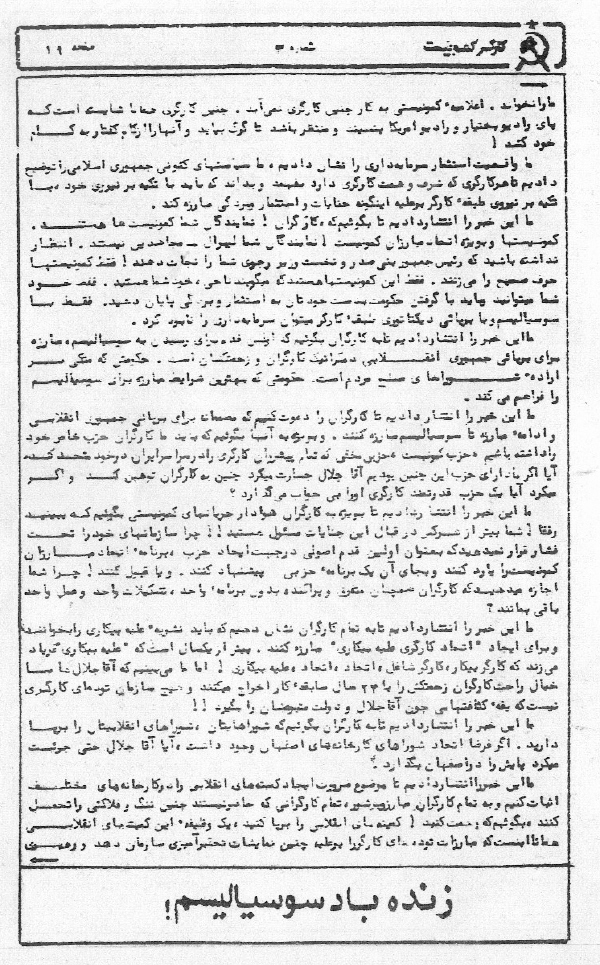 کارگر کمونیست
شماره ۳
صفحه ۱۹
را نخواند. اعلامیه کمونیستی به کار جنبش کارگری نمی‌آید. جنبش کارگری شایسته است که
پای رادیو بختیار و رادیو آمریکا بنشیند و منتظر باشد تا گرگ بیاید و آنها را کفتار به کام
خود کشد!
ما واقعیت استثمار سرمایه‌داری را نشان دادیم، ما سیاستهای کنونی جمهوری اسلامی را توضیح
دادیم تا هر کارگری که شرف و همت کارگری دارد بفهمد و بداند که باید با تکیه بر نیروی خود، با
تکیه بر نیروی طبقه کارگر بر علیه اینگونه جنایات و استثمار و بردگی مبارزه کند.
ما این خبر را انتشار دادیم تا بگوئیم که، کارگران! نمایندگان شما کمونیست ها هستند.
کمونیستها و بویژه اتحاد مبارزان کمونیست! نمایندگان شما لیبرال - مجاهدین نیستند. انتظار
نداشته باشید که رئیس جمهور بنی صدر و نخست وزیر رجوی شما را نجات دهند! فقط کمونیستها
حرف صحیح را می‌زنند. فقط این کمونیستها هستند که میگویند ناجی، خود شما هستید. فقط خود
شما میتوانید بیاید با گرفتن حکومت بدست خودتان به استثمار و بردگی پایان دهید. فقط با
سوسیالیسم و با برپائی دیکتاتوری طبقه کارگر میتوان سرمایه‌داری را نابود کرد.
ما این خبر را انتشار دادیم تا به کارگران بگوئیم که اولین قدم برای رسیدن به سوسیالیسم، مبارزه
برای برپائی جمهوری انقلابی دمکراتیک کارگران و زحمتکشان است. حکومتی که متکی بر
اراده شوراهای مسلح مردم است. حکومتی که بهترین شرایط مبارزه برای سوسیالیسم
را فراهم می‌کند.
ما این خبر را انتشار دادیم تا کارگران را دعوت کنیم که مصممانه برای برپائی جمهوری انقلابی
و ادامه مبارزه تا سوسیالیسم مبارزه کنند. و بویژه به آنها بگوئیم که باید ما کارگران حزب خاص خود
را داشته باشیم «حزب کمونیست» حزبی مخفی که تمام پیشروان کارگری را در سراسر ایران در خود متحد کند،
آیا اگر ما دارای حزب این چنین بودیم آقا جلال جسارت میکرد چنین به کارگران توهین کند و اگر
میکرد آیا یک حزب قدرتمند کارگری او را بی جواب می‌گذارد؟
ما این خبر را انتشار دادیم تا بویژه به کارگران هوادار جریانهای کمونیستی بگوئیم که ببینید
رفقا! شما بیش از هر کس در قبال این جنایات مسئول هستید!! چرا سازمانهای خود را تحت
فشار قرار نمیدهید که بعنوان اولین قدم اصولی در جهت ایجاد حزب، برنامه اتحاد مبارزان
کمونیست را یا رد کنند و بجای آن یک برنامه حزبی پیشنهاد کنند. و یا قبول کنند! چرا شما
اجازه میدهید که کارگران همچنان متفرق و پراکنده، بدون برنامه واحد، تشکیلات واحد و عمل واحد
باقی بمانند؟
ما این خبر را انتشار دادیم تا به تمام کارگران نشان دهیم که باید نشریه علیه بیکاری را بخوانند
و برای ایجاد "اتحاد کارگری علیه بیکاری" مبارزه کنند. بیش از یکسال است که "علیه بیکاری" فریاد
می‌زند که کارگر بیکار، کارگر شاغل، اتحاد، اتحاد، علیه بیکاری! اما ما می‌بینیم که آقا جلال ها با
خیالی راحت کارگران زحمتکش را با ۲۳ سال سابقه کار اخراج میکنند و هیچ سازمان توده‌ای کارگری
نیست که یقه کثافتهایی چون آقا جلال و دولت متبوعشان را بگیرد!!
ما این خبر را انتشار دادیم تا به کارگران بگوئیم که شوراهایتان، شوراهای انقلابیتان را برپا
دارید. اگر فرضا اتحاد شوراهای کارخانه‌های اصفهان وجود داشت، آیا آقا جلال حتی جرئت
میکرد پایش را در اصفهان بگذارد؟
ما این خبر را انتشار دادیم تا موضوع ضرورت ایجاد کمیته‌های انقلابی را در کارخانه‌های مختلف
اثبات کنیم و به تمام کارگران مبارز و پرشور، تمام کارگرانی که حاضر نیستند چنین ننگ و فلاکتی را تحمل
کنند، بگوئیم که همت کنید! کمیته‌های انقلابی را برپا کنید، یک وظیفه این کمیته‌های انقلابی
همانا اینست که مبارزات توده‌های کارگر را بر علیه چنین نمایشات تحقیرآمیزی سازمان دهد و رهبری
زنده باد سوسیالیسم!